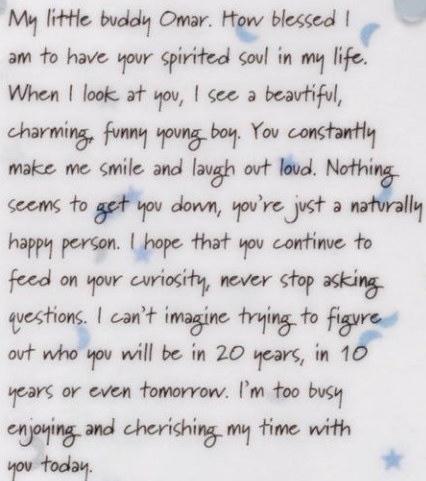 My little buddy Omar. How blessed I
am to have your spirited soul in my life.
When I look at you, I see a beautiful,
charming, funny young boy. You constantly
make me smile and laugh out loud. Nothing
seems to get you down, you're just a naturally
happy person. I hope that you continue to
feed on your curiosity, never stop asking
questions. I can't imagine trying to figure
out who you will be in 20 years, in 10
years or even tomorrow. I'm too busy
enjoying and cherishing my time with
you today.